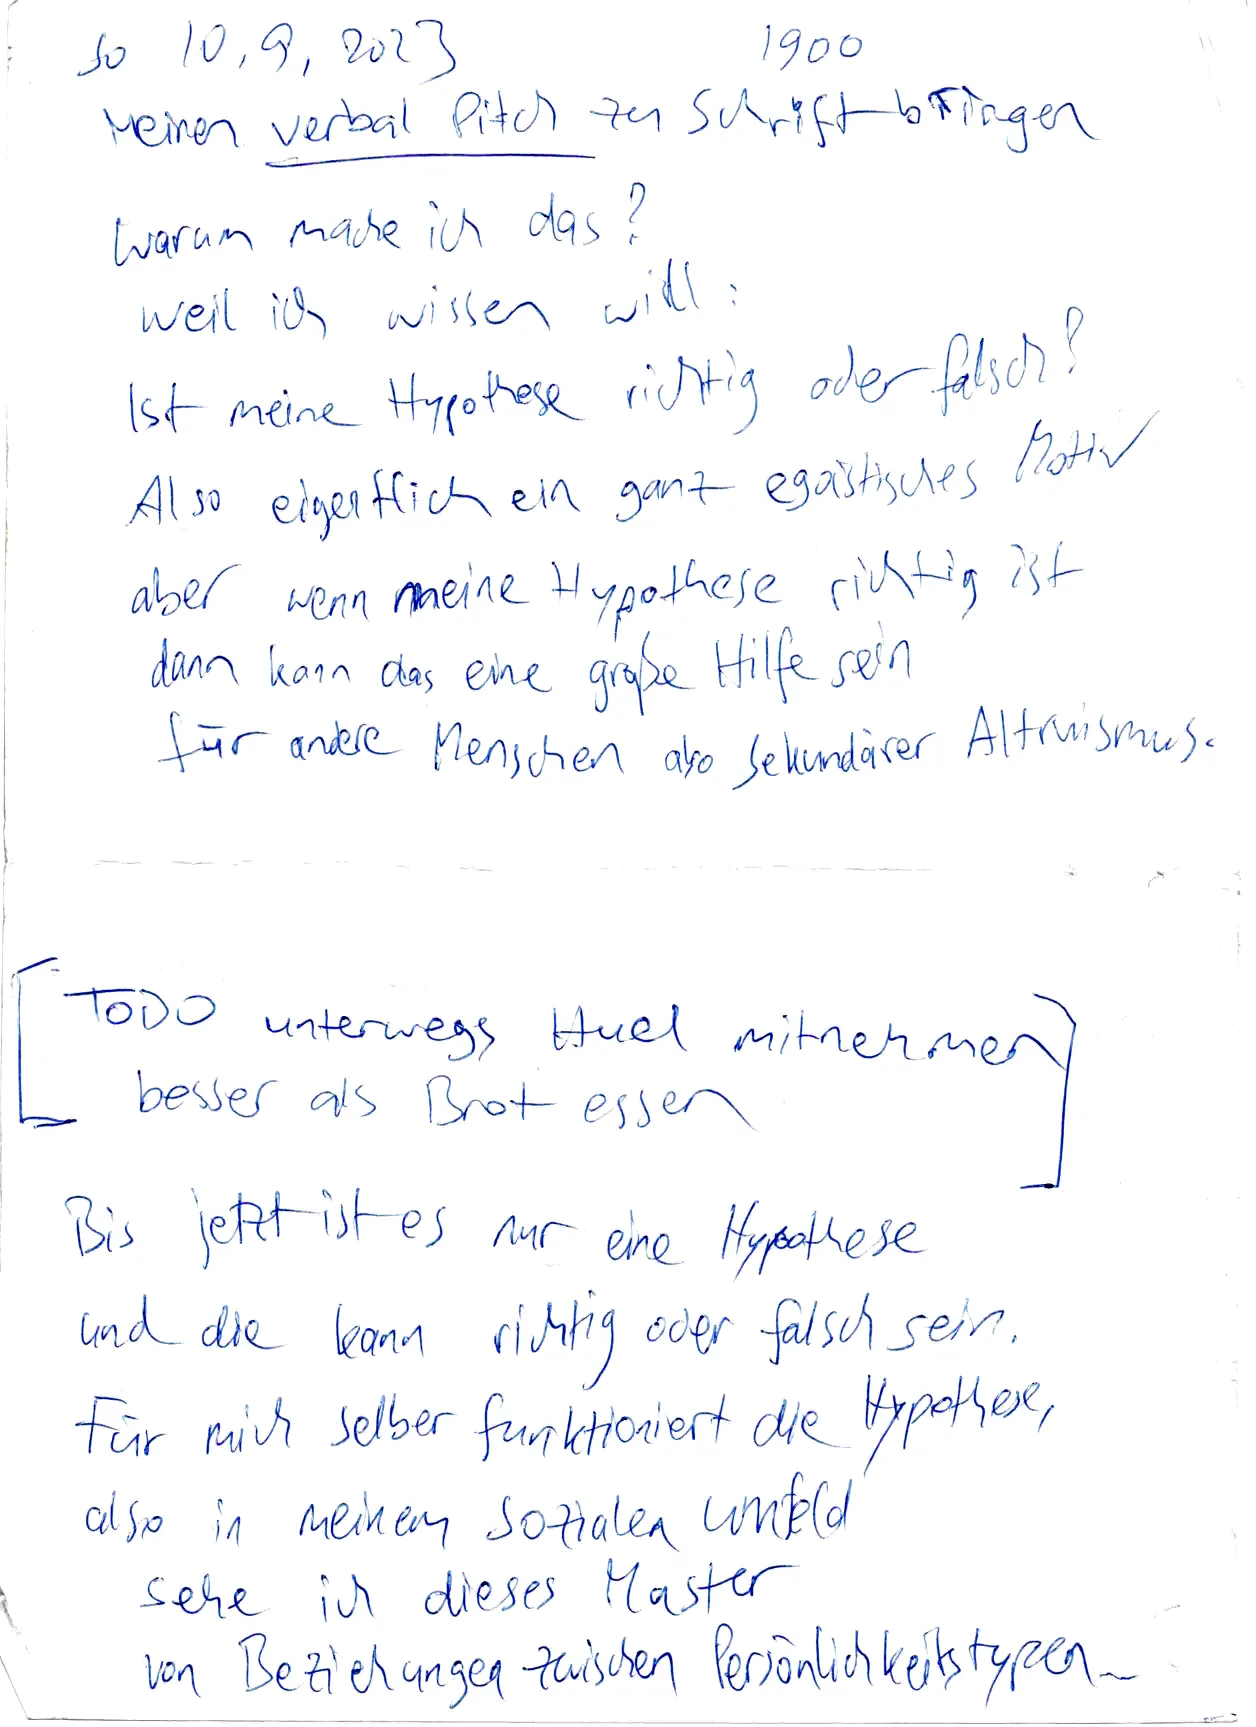 So 10.9.2023 1900
Meinen verbal Pitch zu Schrift bringen
Warum mache ich das?
weil ich wissen will:
Ist meine Hypothese richtig oder falsch?
Also eigentlich ein ganz egoistisches Motiv
aber wenn meine Hypothese richtig ist
dann kann das eine große Hilfe sein
für andere Menschen also sekundärer Altruismus.
[TODO unterwegs Huel mitnehmen
besser als Brot essen]
Bis jetzt ist es nur eine Hypothese
und die kann richtig oder falsch sein.
Für mich selber funktioniert die Hypothese,
also in meinem sozialen Umfeld
sehe ich dieses Master
von Beziehungen zwischen Persönlichkeitstypen